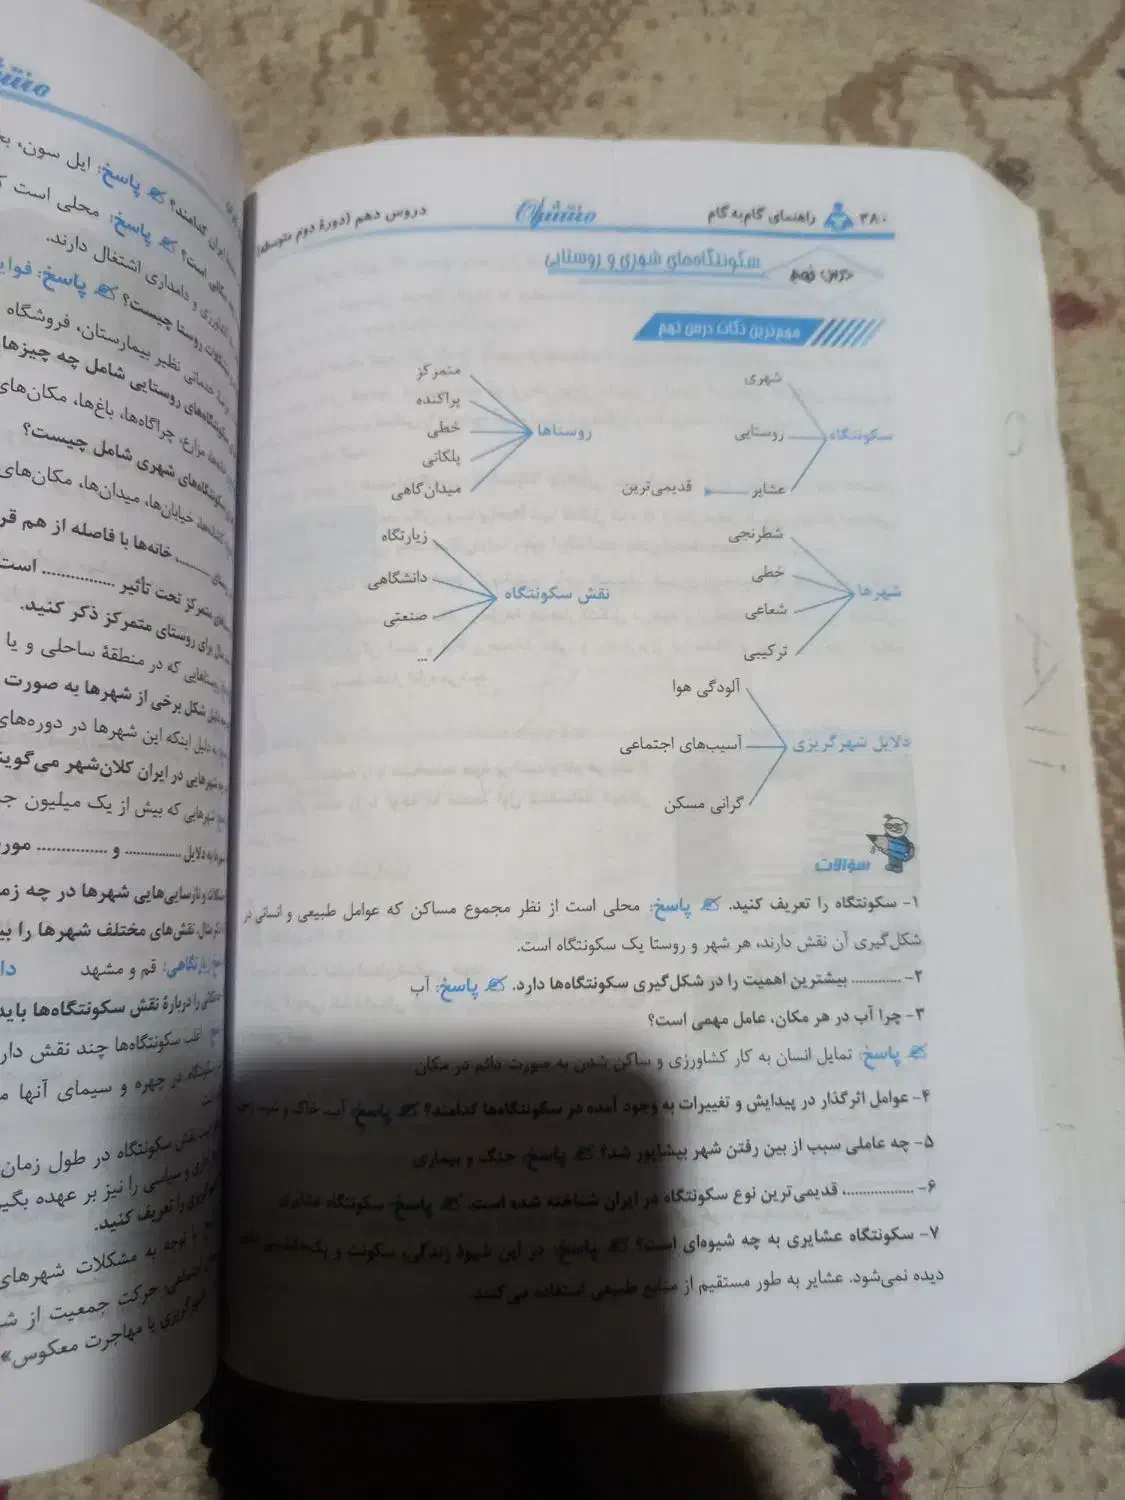 ۳۸۰ راهنمای گام‌به‌گام منتشران دروس دهم (دورهٔ دوم متوسطه)
درس نهم سکونتگاه‌های شهری و روستایی
مهم‌ترین نکات درس نهم
سکونتگاه
شهری
روستایی
عشایر
قدیمی‌ترین
روستاها
متمرکز
پراکنده
خطی
پلکانی
میدان‌گاهی
شهرها
شطرنجی
خطی
شعاعی
ترکیبی
نقش سکونتگاه
زیارتگاه
دانشگاهی
صنعتی
...
دلایل شهرگریزی
آلودگی هوا
آسیب‌های اجتماعی
گرانی مسکن
سؤالات
۱- سکونتگاه را تعریف کنید. پاسخ: محلی است از نظر مجموع مساکن که عوامل طبیعی و انسانی در
شکل‌گیری آن نقش دارند، هر شهر و روستا یک سکونتگاه است.
۲- ............ بیشترین اهمیت را در شکل‌گیری سکونتگاه‌ها دارد. پاسخ: آب
۳- چرا آب در هر مکان، عامل مهمی است؟
پاسخ: تمایل انسان به کار کشاورزی و ساکن شدن به صورت دائم در مکان
۴- عوامل اثرگذار در پیدایش و تغییرات به وجود آمده در سکونتگاه‌ها کدامند؟ پاسخ: آب، خاک و
۵- چه عاملی سبب از بین رفتن شهر بیشاپور شد؟ پاسخ: جنگ و بیماری
۶- ................، قدیمی‌ترین نوع سکونتگاه در ایران شناخته شده است. پاسخ: سکونتگاه عشایری
۷- سکونتگاه عشایری به چه شیوه‌ای است؟ پاسخ: در این شیوهٔ زندگی، سکونت و یک‌جانشینی
دیده نمی‌شود. عشایر به طور مستقیم از منابع طبیعی استفاده می‌کنند.
ایران کدامند؟ پاسخ: ایل سون،
است؟ پاسخ: محلی است
کشاورزی و دامداری اشتغال دارند.
روستا چیست؟ پاسخ:
خدماتی نظیر بیمارستان، فروشگاه
سکونتگاه‌های روستایی شامل چه
مزارع، چراگاه‌ها، باغ‌ها، مکان‌های
سکونتگاه‌های شهری شامل چیست؟
خیابان‌ها، میدان‌ها، مکان‌های
خانه‌ها با فاصله از هم
متمرکز تحت تأثیر .............. است
برای روستای متمرکز ذکر کنید.
روستاهایی که در منطقهٔ ساحلی و یا
شکل برخی از شهرها به صورت
دلیل اینکه این شهرها در دوره‌های
شهرهایی در ایران کلان‌شهر
شهرهایی که بیش از یک میلیون
به دلایل .............. و ..............
نارسایی‌هایی شهرها در چه
نقش‌های مختلف شهرها را
زیارتگاهی: قم و مشهد
را دربارهٔ نقش سکونتگاه‌ها
اغلب سکونتگاه‌ها چند نقش
در چهره و سیمای آنها
نقش سکونتگاه در طول زمان
و سیاسی را نیز بر عهده
را تعریف کنید.
با توجه به مشکلات شهرهای
اجتماعی، حرکت جمعیت از
شهرگریزی یا مهاجرت معکوس»